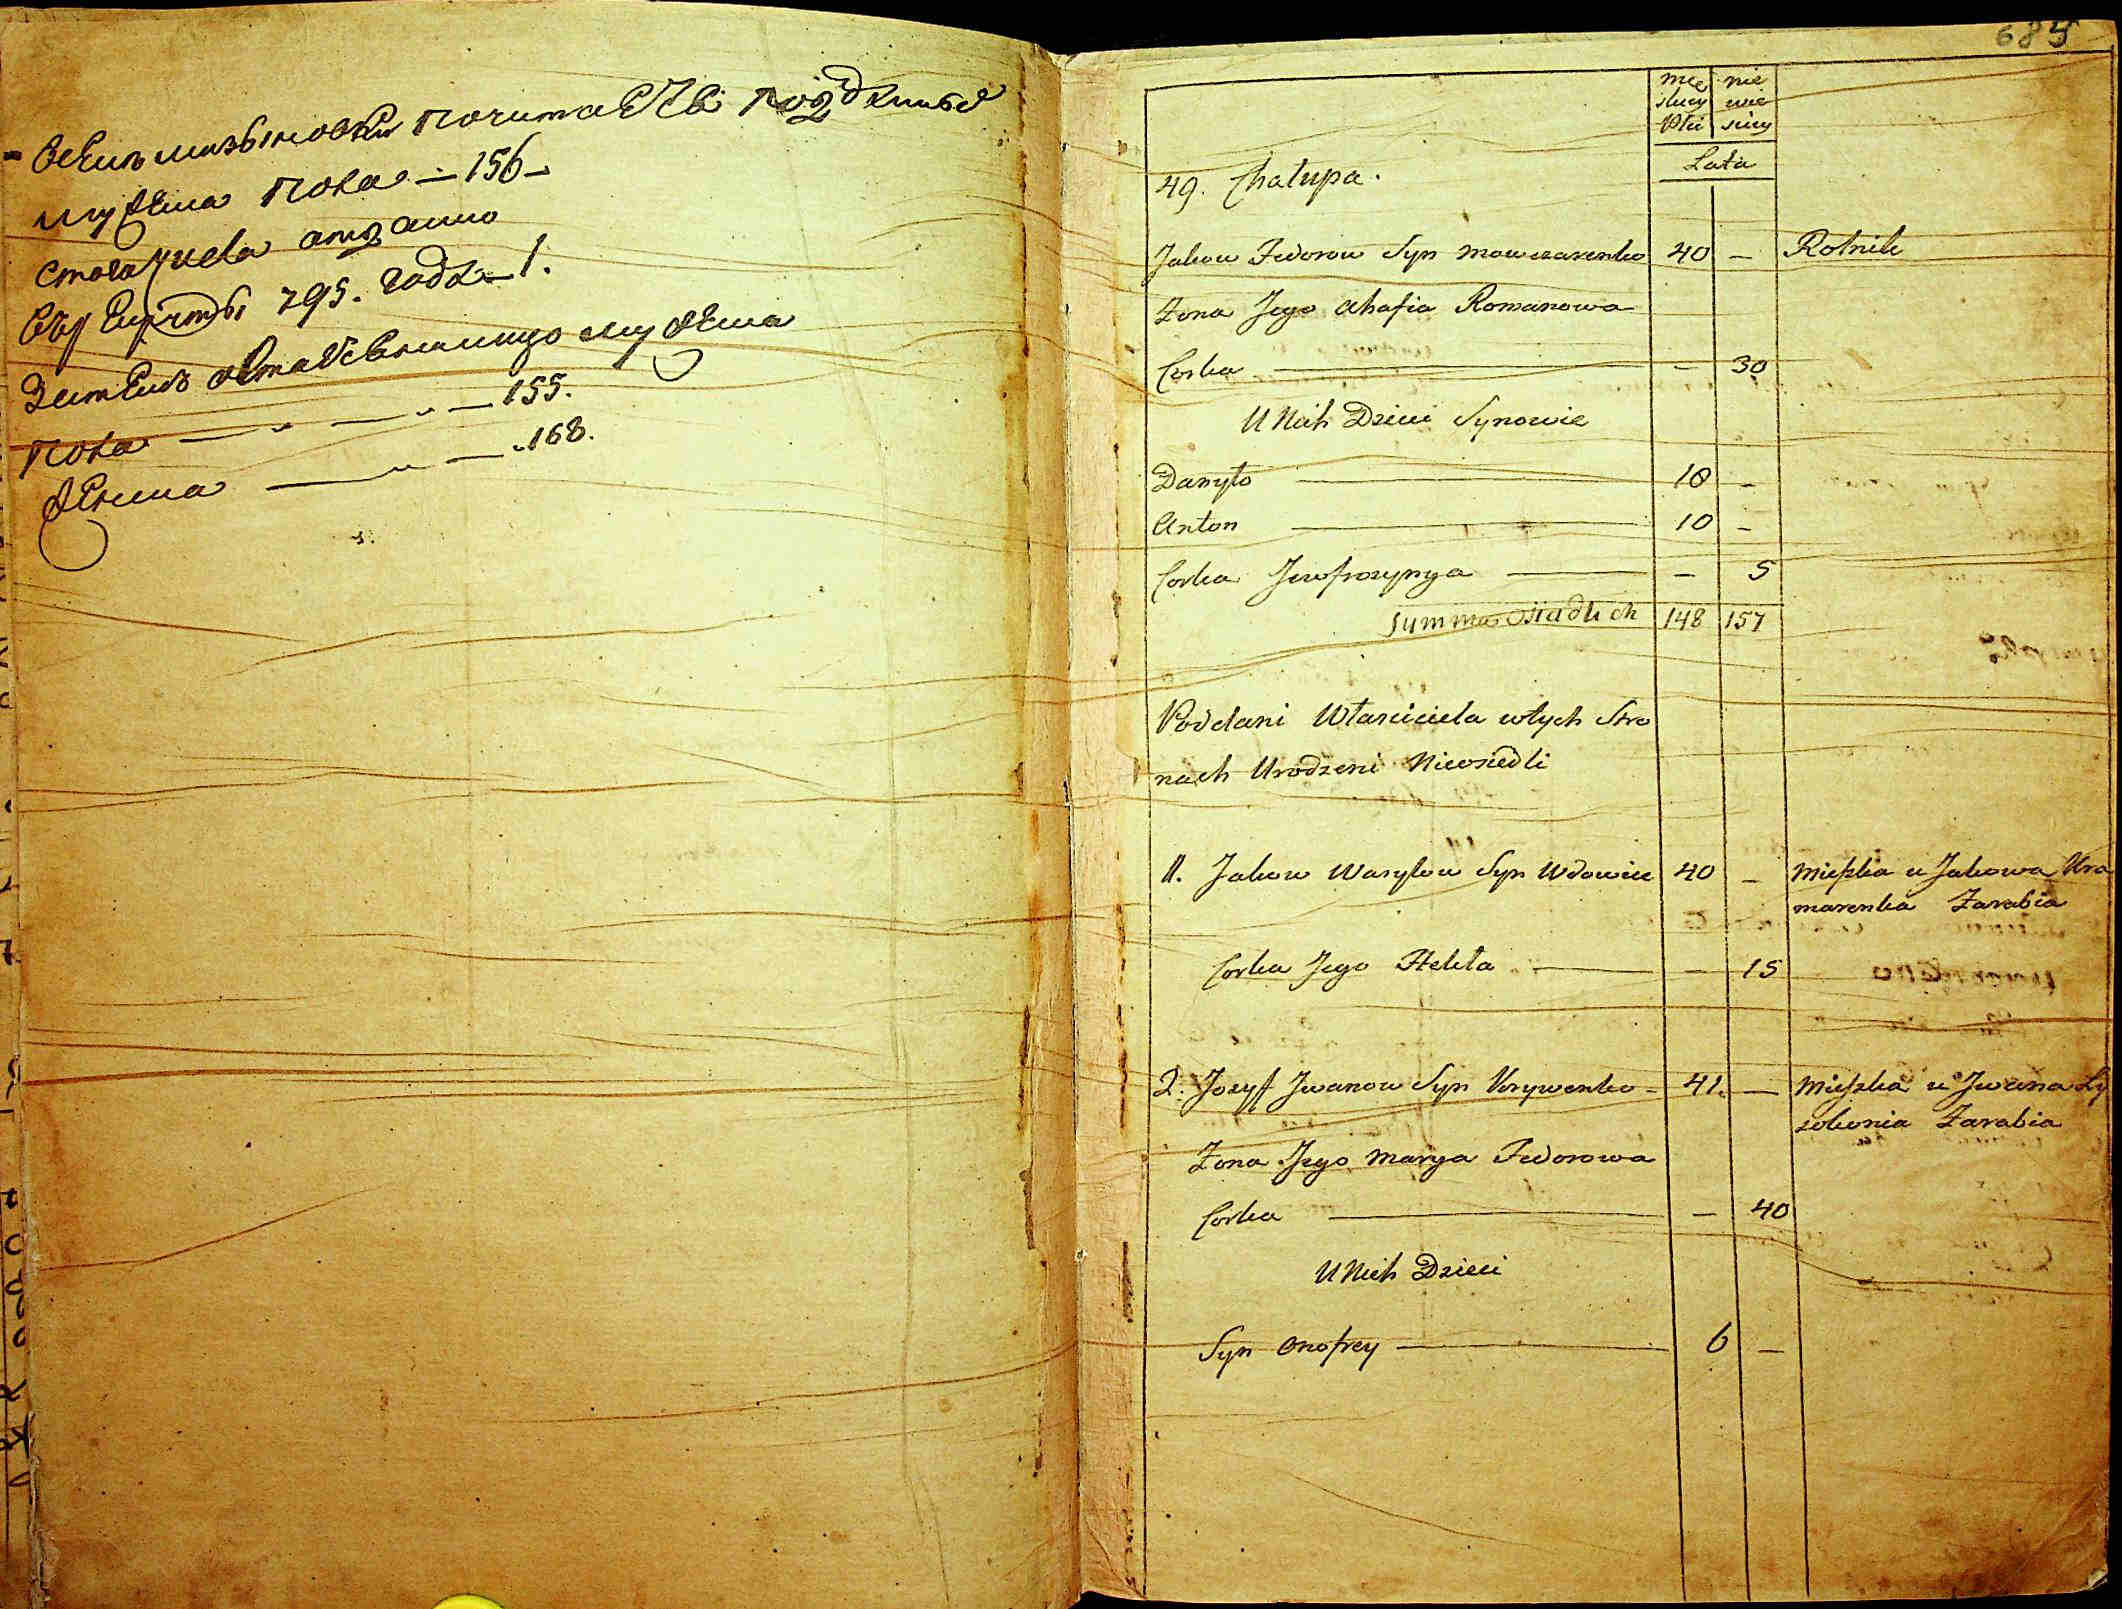 мужеска пола — 156 —
стого числа
795. года — 1.
мужеска
пола — „ — „ — 155.
женска — „ — „ 168.
685
mę nie
skiey wie
Płci sciey
Lata
49. Chałupa.
Jakow Fedorow Syn Mowczarenko 40 — Rolnik
Zona Jego Ahafia Romanowa
Corka — — 30
U Nich Dzieci Synowie
Danyło — 18 —
Anton — 10 —
Corka Jewfrozynya — — 5
Summa Osiadlich 148 157
Poddani Własciciela wtych Stro
nach Urodzeni Nieosiedli
1. Jakow Wasylow Syn Wdowiec 40 — Mieszka u Jakowa Kra
marenka Zarabia
Corka Jego Hekla — — 15
2. Jozyff Jwanow Syn Korywenko — 41. — Mieszka u Jwana Ly
zohonia Zarabia
Zona Jego Marya Fedorowa
Corka — — 40
U Nich Dzieci
Syn Onofrey — 6 —